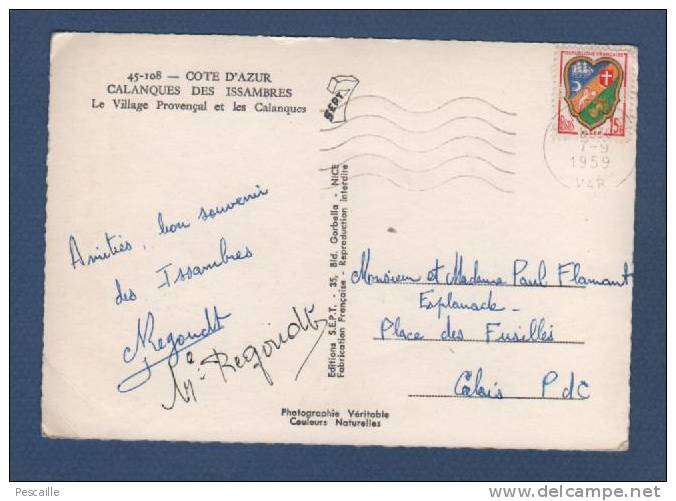 45-108 — COTE D'AZUR
CALANQUES DES ISSAMBRES
Le Village Provençal et les Calanques
S.E.P.T.
REPUBLIQUE FRANÇAISE
15F
7-9
1959
VAR
Amitiés, bon souvenir
des Issambres
Regoudt
Regoudt
Editions S.E.P.T. - 35, Bld. Gorbella - NICE
Fabrication Française - Reproduction Interdite
Monsieur et Madame Paul Flamant
Esplanade -
Place des Fusillés
Calais PdC
Photographie Véritable
Couleurs Naturelles
Pescaille
www.delcampe.net